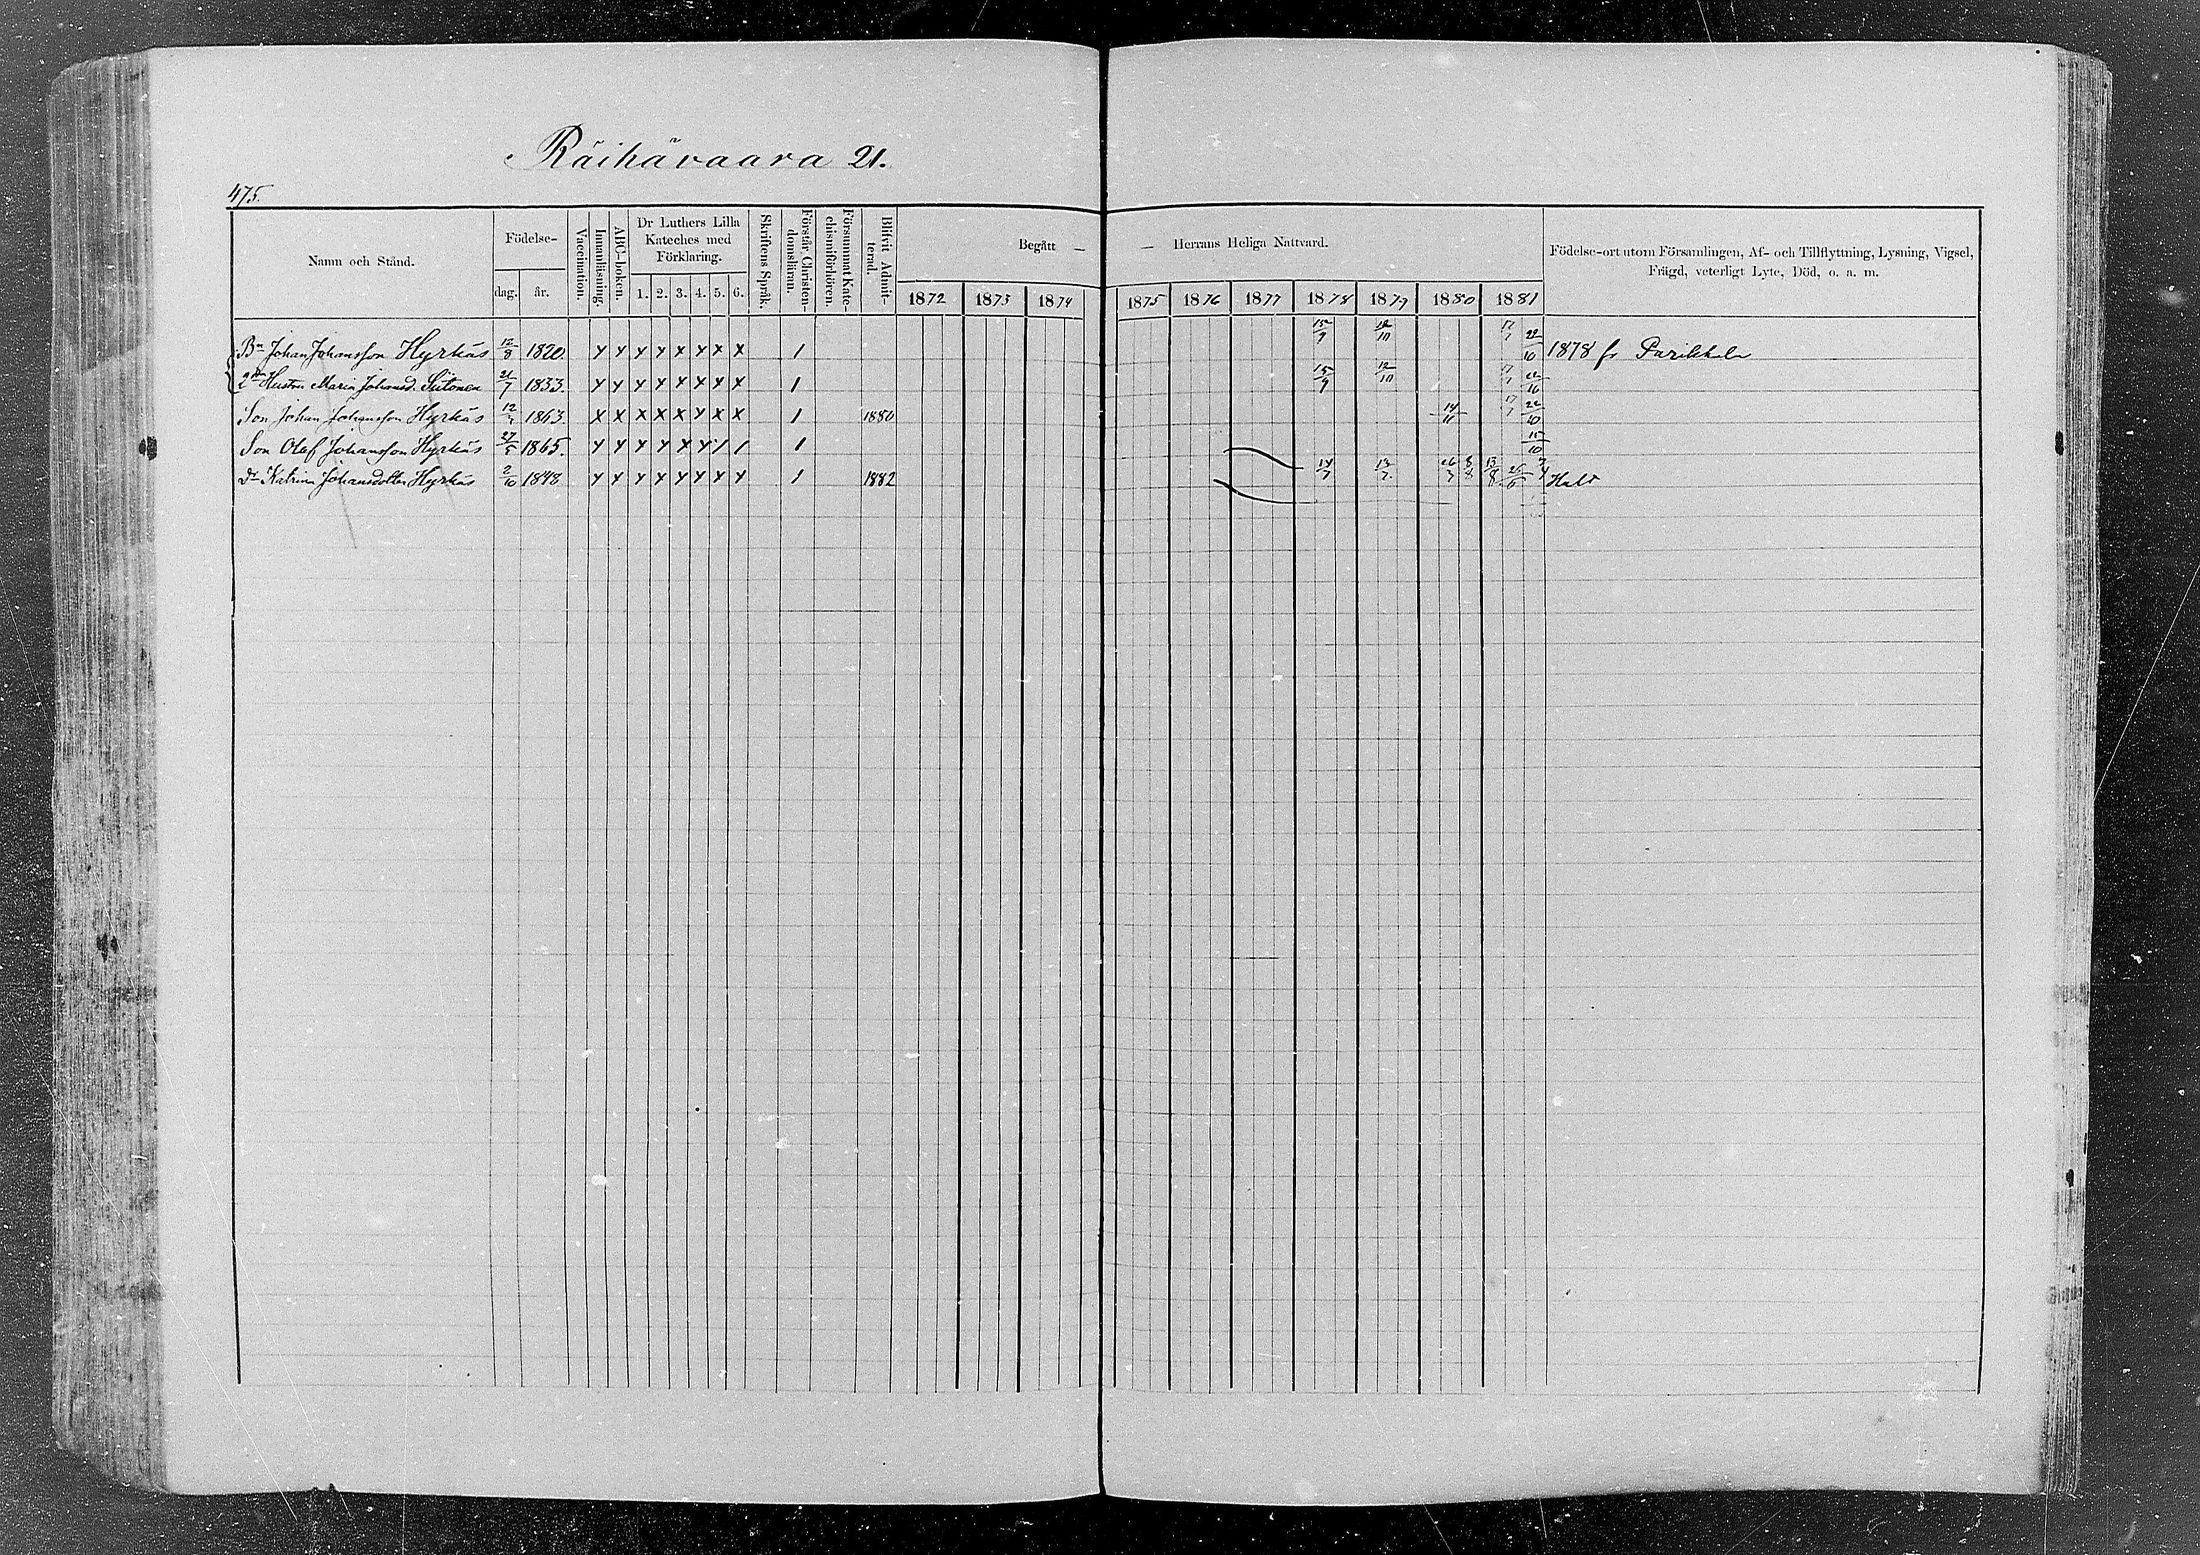 Räihävaara 21.
475.
Namn och Stånd.
Födelse-
dag.
år.
Vaccination.
Innanläsning.
ABC-boken.
Dr Luthers Lilla Kateches med Förklaring.
1. 2. 3. 4. 5. 6.
Skriftens Språk.
Förstår Christendomsläran.
Försummat Katechismiförhören.
Blifvit Admitterad.
Begått — — Herrans Heliga Nattvard.
1872 1873 1874 1875 1876 1877 1878 1879 1880 1881
Födelse-ort utom Församlingen, Af- och Tillflyttning, Lysning, Vigsel,
Frägd, veterligt Lyte, Död, o. a. m.
Bn Johan Johansson Hyrkäs 12/8 1820. x x x x x x x x 1 15/9 12/10 17/7 22/10 1878 fr Parikkala
Hustru Maria Johansd. Siitonen 21/7 1833. x x x x x x x x 1 15/9 12/10 17/7 22/10
Son Johan Johansson Hyrkäs 1863. x x x x x x x x 1 1880 14/11 17/7 22/10
Son Olef Johansson Hyrkäs 27/5 1865. x x x x x x / / 1 15/10
Dr Katrina Johansdotter Hyrkäs 2/10 1848 x x x x x x x x 1 1882 14/7 Halt